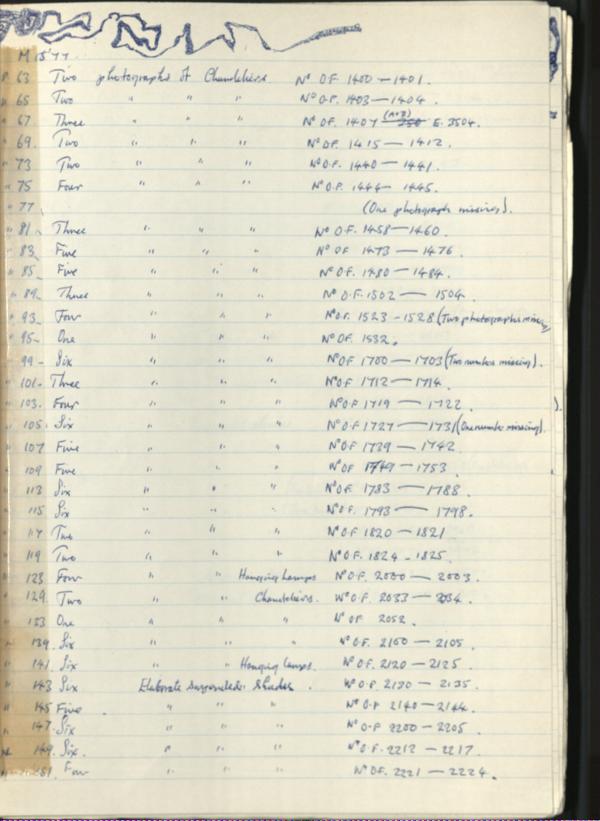 M 1577
P. 63 Two photographs of Chandeliers. Nº OF 1400 — 1401.
" 65 Two " " " Nº O.F. 1403 — 1404.
" 67. Three " " " Nº OF. 1407 (A+B) E. 3504.
" 69. Two " " " Nº OF. 1415 — 1412.
" 73 Two " " " Nº OF. 1440 — 1441.
" 75 Four " " " Nº O.F. 1444 — 1445.
" 77 (One photograph missing).
" 81. Three " " " Nº O.F. 1458 — 1460.
" 83. Five " " " Nº OF 1473 — 1476.
" 85. Five " " " Nº O.F. 1480 — 1484.
" 89. Three " " " Nº O.F. 1502 — 1504.
" 93. Four " " " Nº O.F. 1523 - 1528 (Two photographs missing)
" 95- One " " " Nº OF. 1532.
" 99 - Six " " " Nº OF 1700 — 1703 (Two number missing).
" 101- Three " " " Nº O.F 1712 — 1714.
" 103. Four " " " Nº O.F 1719 — 1722.
" 105. Six " " " Nº O.F 1727 — 1731 (One number missing).
" 107 Five " " " Nº O.F 1739 — 1742.
" 109 Five " " " Nº OF 1749 — 1753.
" 113 Six " " " Nº O.F. 1783 — 1788.
" 115 Six " " " Nº O.F. 1793 — 1798.
" 117 Two " " " Nº O.F 1820 — 1821
" 119 Two " " " Nº O.F. 1824 - 1825.
" 123 Four " " Hanging Lamps Nº O.F. 2000 — 2003.
" 129. Two " " Chandeliers. Nº O.F. 2033 — 2034.
" 133 One " " " Nº OF 2052.
" 139. Six " " " Nº O.F. 2100 — 2105.
" 141. Six " " Hanging lamps. Nº O.F. 2120 — 2125.
" 143 Six Elaborate Suspended Shades. Nº O.F 2130 — 2135.
" 145 Five " " " Nº O.F 2140 — 2144.
" 147. Six " " " Nº O-F 2200 — 2205.
" 149. Six. " " " Nº O.F. 2212 — 2217.
151. Four " " " Nº OF. 2221 — 2224.